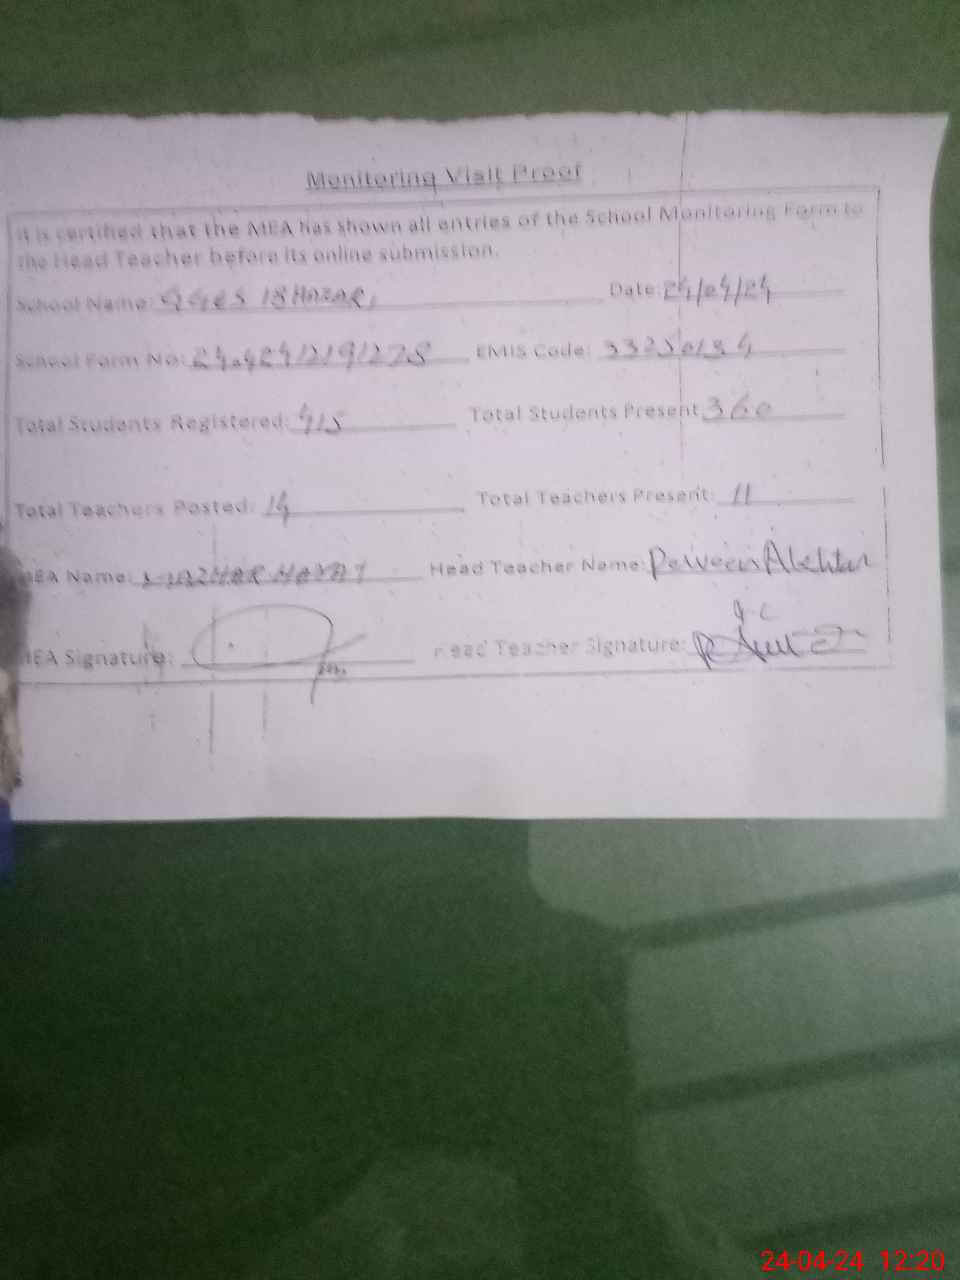 Monitoring Visit Proof
It is certified that the MEA has shown all entries of the School Monitoring Form to
the Head Teacher before its online submission.
School Name: GGES 18 HAZARI Date: 24/04/24
School Form No: EMIS Code: 33250134
Total Students Registered: 415 Total Students Present: 360
Total Teachers Posted: 14 Total Teachers Present: 11
MEA Name: MAZHAR HAYAT Head Teacher Name: Perveen Akhtar
MEA Signature: Head Teacher Signature:
24-04-24 12:20